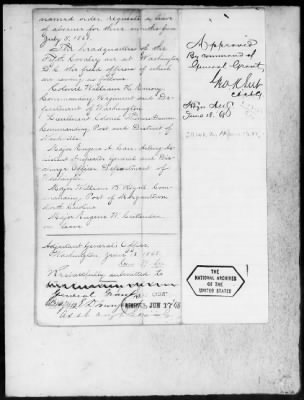 named order, requests a leave
of absence for three months from
July 8, 1868.
The headquarters of the
Fifth Cavalry are at Washington
D.C. the field officers of which
are serving as follows
Colonel William H. Emory
Commanding Regiment and De-
partment of Washington
Lieutenant Colonel Thomas Duncan
Commanding Post and District of
Nashville
Major Eugene A. Carr Acting As-
sistant Inspector General
Officer Department of
Washington
Major William B. Royall Com-
manding Post of Morganton
North Carolina
Major Eugene W. Crittenden
on leave
Adjutant General's Office,
Washington June 1868.
Respectfully submitted to
General Grant
Asst. Adjt. General
JUN 17 68
Approved
By command of
General Grant,
Hdqrs.
June 18. 68
THE
NATIONAL ARCHIVES
OF THE
UNITED STATES